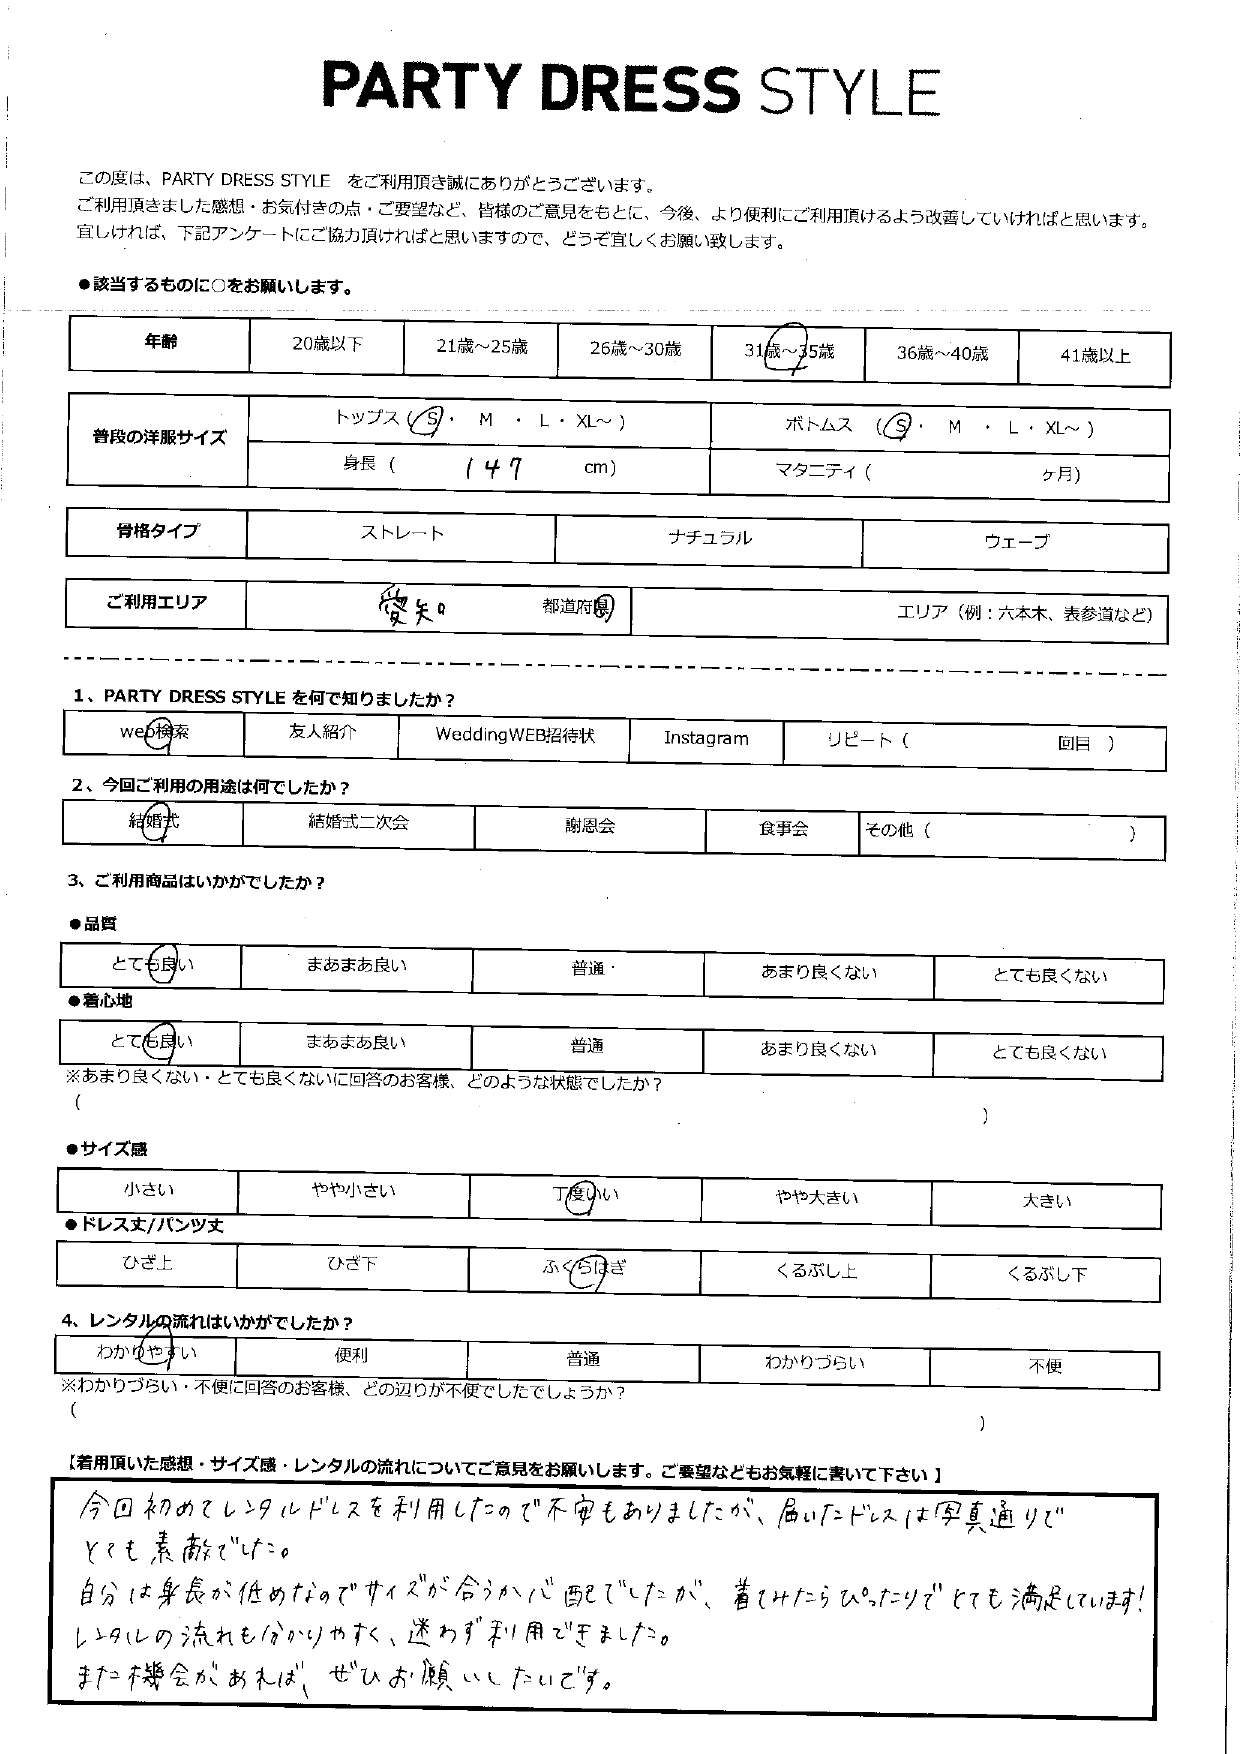 PARTY DRESS STYLE
この度は、PARTY DRESS STYLE をご利用頂き誠にありがとうございます。
ご利用頂きました感想・お気付きの点・ご要望など、皆様のご意見をもとに、今後、より便利にご利用頂けるよう改善していければと思います。
宜しければ、下記アンケートにご協力頂ければと思いますので、どうぞ宜しくお願い致します。
●該当するものに○をお願いします。
年齢 20歳以下 21歳～25歳 26歳～30歳 31歳～35歳 36歳～40歳 41歳以上
普段の洋服サイズ トップス (S・ M ・ L・ XL～ ) ボトムス (S・ M ・ L・ XL～ )
身長 ( 147 cm) マタニティ ( ヶ月)
骨格タイプ ストレート ナチュラル ウェーブ
ご利用エリア 愛知 都道府県 エリア（例：六本木、表参道など）
1、PARTY DRESS STYLE を何で知りましたか？
web検索 友人紹介 WeddingWEB招待状 Instagram リピート ( 回目 )
2、今回ご利用の用途は何でしたか？
結婚式 結婚式二次会 謝恩会 食事会 その他 ( )
3、ご利用商品はいかがでしたか？
●品質
とても良い まあまあ良い 普通 あまり良くない とても良くない
●着心地
とても良い まあまあ良い 普通 あまり良くない とても良くない
※あまり良くない・とても良くないに回答のお客様、どのような状態でしたか？
( )
●サイズ感
小さい やや小さい 丁度いい やや大きい 大きい
●ドレス丈/パンツ丈
ひざ上 ひざ下 ふくらはぎ くるぶし上 くるぶし下
4、レンタルの流れはいかがでしたか？
わかりやすい 便利 普通 わかりづらい 不便
※わかりづらい・不便に回答のお客様、どの辺りが不便でしたでしょうか？
( )
【着用頂いた感想・サイズ感・レンタルの流れについてご意見をお願いします。ご要望などもお気軽に書いて下さい 】
今回初めてレンタルドレスを利用したので不安もありましたが、届いたドレスは写真通りで
とても素敵でした。
自分は身長が低めなのでサイズが合うか心配でしたが、着てみたらぴったりでとても満足しています!
レンタルの流れも分かりやすく、迷わず利用できました。
また機会があれば、ぜひお願いしたいです。